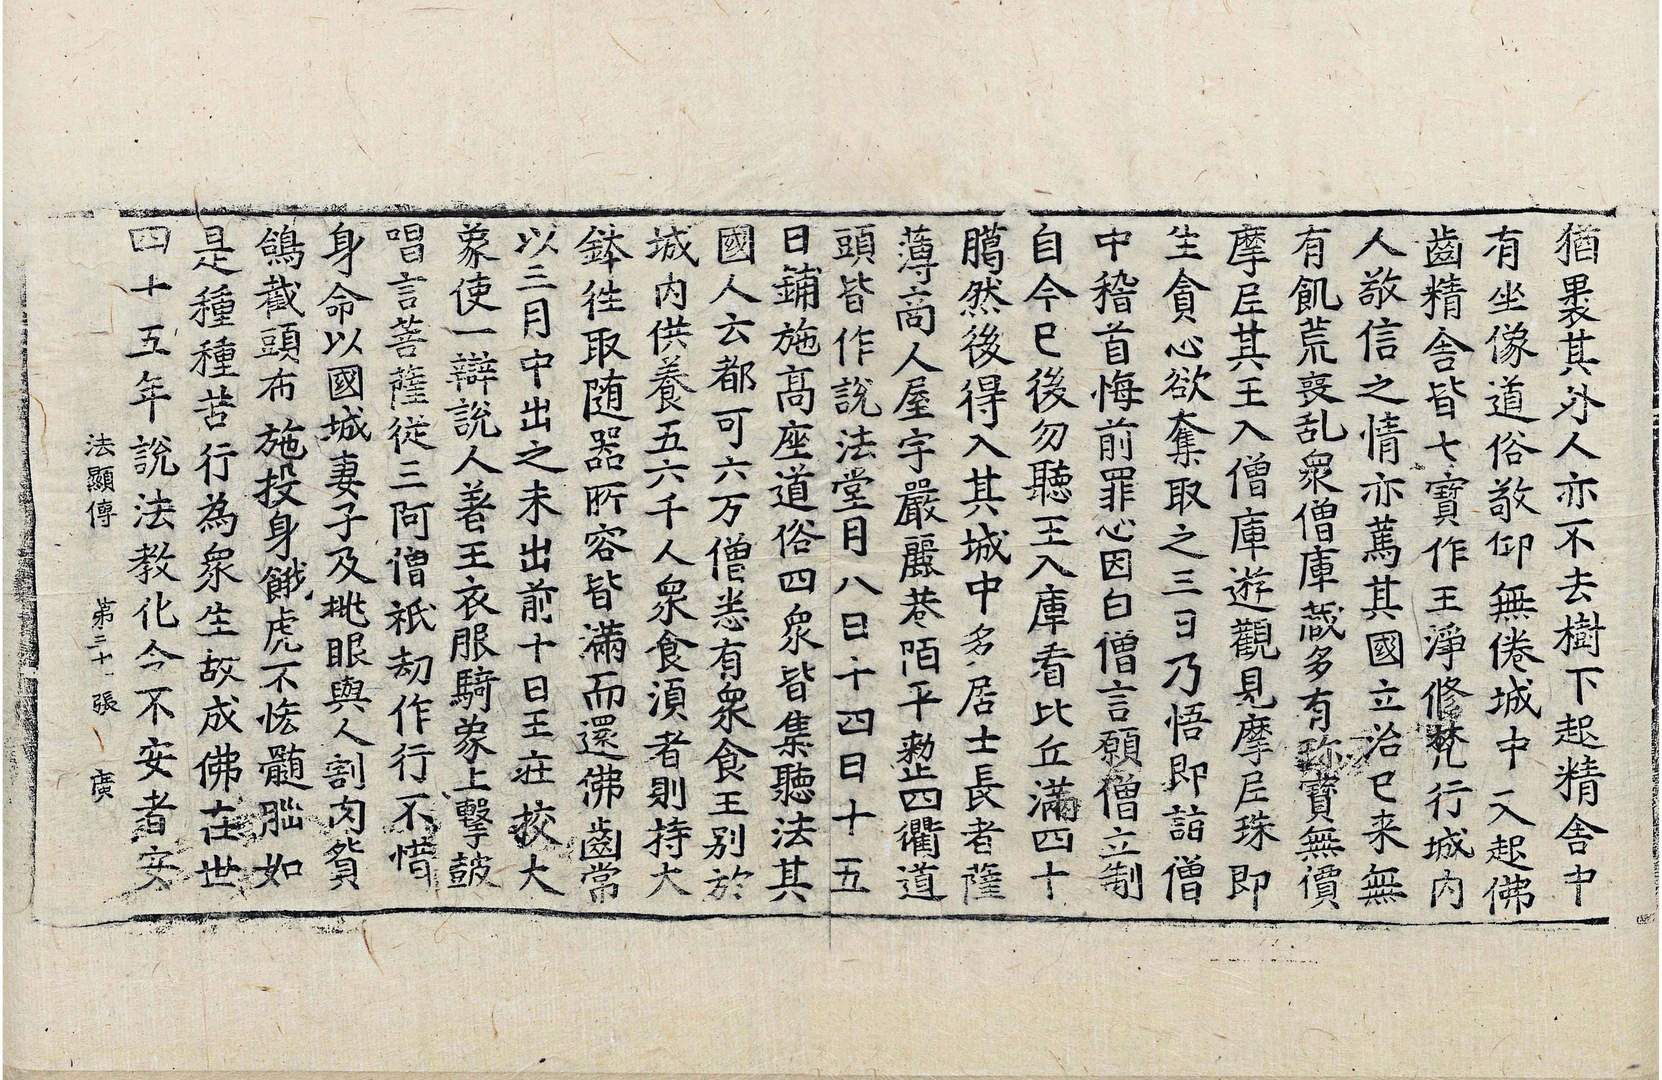 猶裹其外人亦不去樹下起精舍中
有坐像道俗敬仰無倦城中又起佛
齒精舍皆七寶作王淨修梵行城內
人敬信之情亦篤其國立治已来無
有飢荒喪乱衆僧庫藏多有珎寶無價
摩尼其王入僧庫遊觀見摩尼珠即
生貪心欲奪取之三日乃悟即詣僧
中稽首悔前罪心因白僧言願僧立制
自今已後勿聽王入庫看比丘滿四十
臈然後得入其城中多居士長者薩
薄商人屋宇嚴麗巷陌平勑止四衢道
頭皆作說法堂月八日十四日十五
日鋪施高座道俗四衆皆集聽法其
國人云都可六万僧悉有衆食王别於
城內供養五六千人衆食湏者則持大
鉢往取随器所容皆滿而還佛齒常
以三月中出之未出前十日王莊挍大
象使一辯說人著王衣服騎象上擊鼓
唱言菩薩從三阿僧祇劫作行不惜
身命以國城妻子及挑眼與人割肉貿
鴿截頭布施投身餓虎不悋髓腦如
是種種苦行為衆生故成佛在世
四十五年說法教化令不安者安
法顯傳　第三十一張　廣